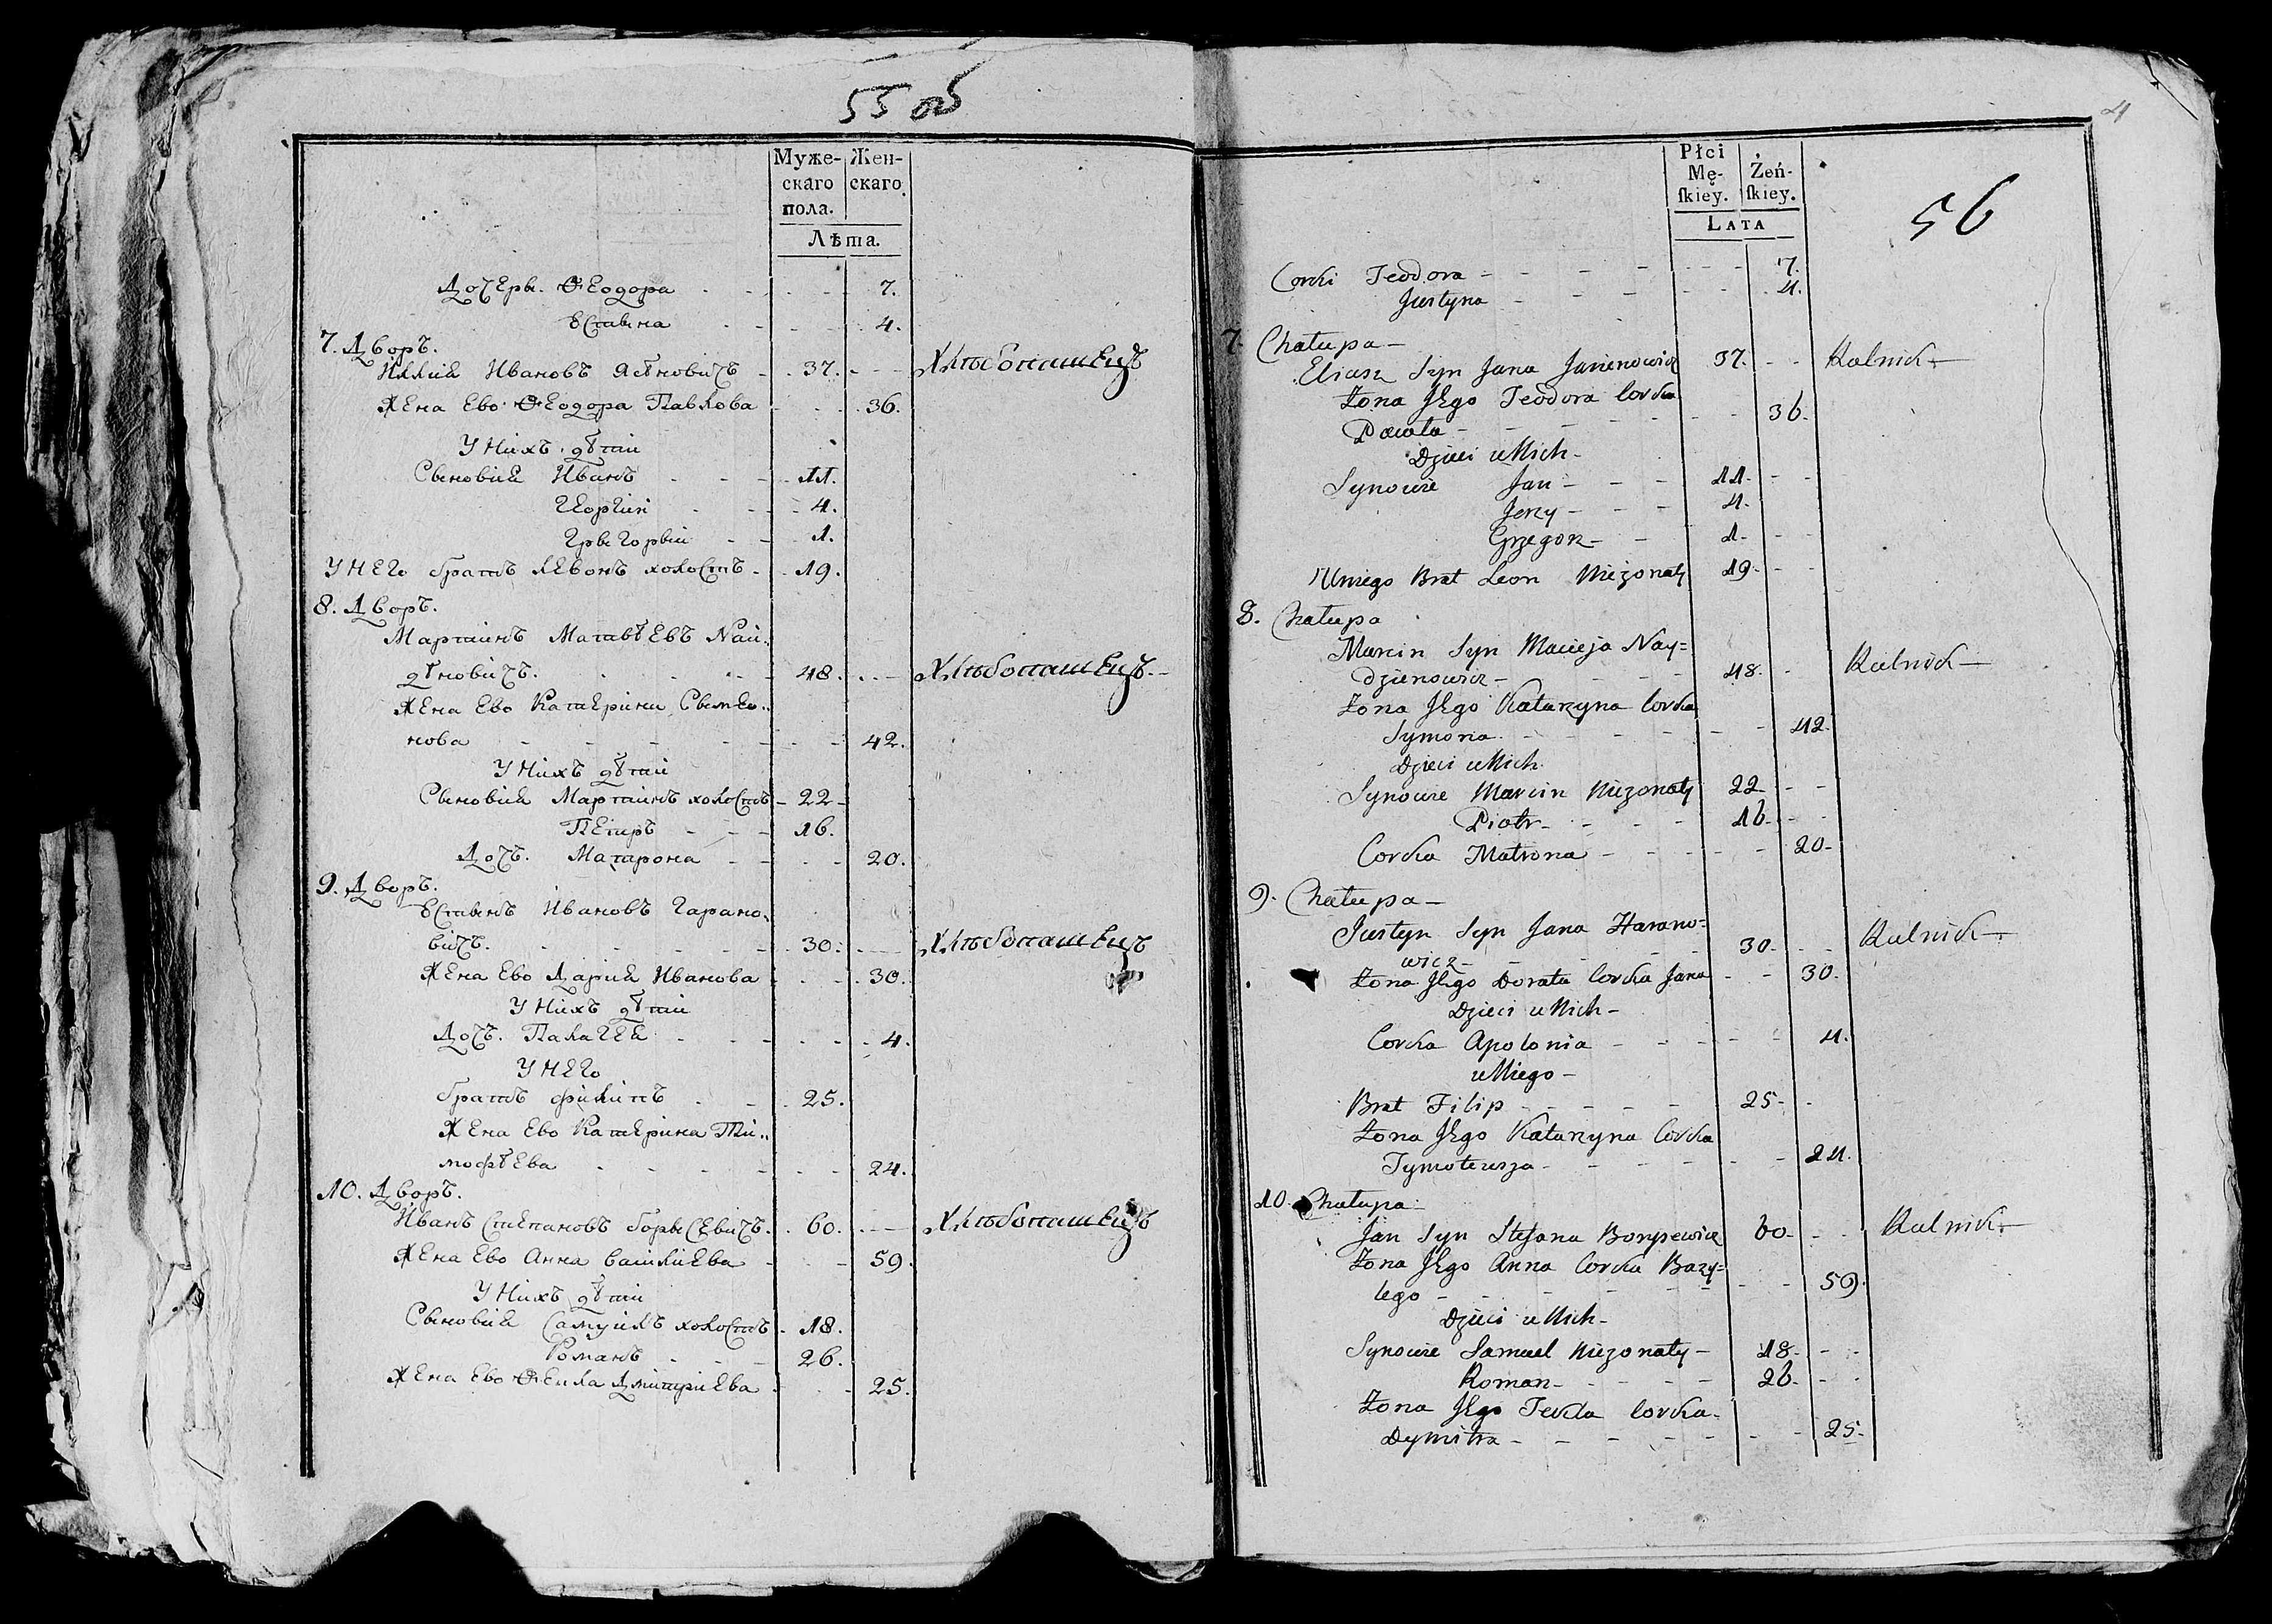 55 об
Муже-
скаго
пола.
Жен-
скаго
Лѣта.
Дочери. Ѳеодора 7.
Устина 4.
7. Дворъ.
Иллия Ивановъ Яѣновичъ 37. Хлѣбопашецъ
Жена Ево Ѳеодора Павлова 36.
У нихъ дѣти
Сыновия Иванъ 11.
Георгии 4.
Григории 1.
У него братъ Левонъ холостъ 19.
8. Дворъ.
Мартинъ Матвѣевъ Най-
дѣновичъ. 48. Хлѣбопашецъ.
Жена Ево Катерини Сымео-
нова 42.
У нихъ дѣти
Сыновия Мартинъ холостъ 22
Петръ 16.
Дочъ. Матрона 20.
9. Дворъ.
Устинъ Ивановъ Гарано-
вичъ. 30. Хлѣбопашецъ
Жена Ево Дария Иванова 30.
У нихъ дѣти
Дочъ. Палагея 4.
У него
братъ Филипъ 25.
Жена Ево Катерина Ти-
мофѣева 24.
10. Дворъ.
Иванъ Степановъ борысевичъ. 60. Хлѣбопашецъ
Жена Ево Анна василиева 59.
У нихъ дѣти
Сыновия Самуилъ холостъ 18.
Романъ 26.
Жена Ево Ѳекла Дмитриева 25.
4
56
Płci
Mę-
ſkiey.
Żeń-
ſkiey.
LATA
Corki Teodora 7.
Justyna 4.
7. Chałupa
Eliasz Syn Jana Jasienowicz 37. Rolnik
Żona Jego Teodora Corka
Pawła 36.
Dzieci u Nich
Synowie Jan 11.
Jerzy 4.
Grzegorz 1.
U niego Brat Leon Nieżonaty 19
8. Chałupa
Marcin Syn Macieja Nay=
dzienowicz 48. Rolnik
Żona Jego Katarzyna Corka
Symona 42.
Dzieci u Nich
Synowie Marcin Nieżonaty 22
Piotr 16
Corka Matrona 20
9. Chałupa
Justyn Syn Jana Harano=
wicz 30. Rolnik
Żona Jego Dorata Corka Jana 30.
Dzieci u Nich
Corka Apolonia 4.
u Niego
Brat Filip 25
Żona Jego Katarzyna Corka
Tymoteusza 24.
10. Chałupa
Jan Syn Stefana Borysewicz 60 Rolnik
Żona Jego Anna Corka Bazy=
lego 59.
Dzieci u Nich
Synowie Samuel Nieżonaty 18
Roman 26
Żona Jego Tekla Corka
Dymitra 25